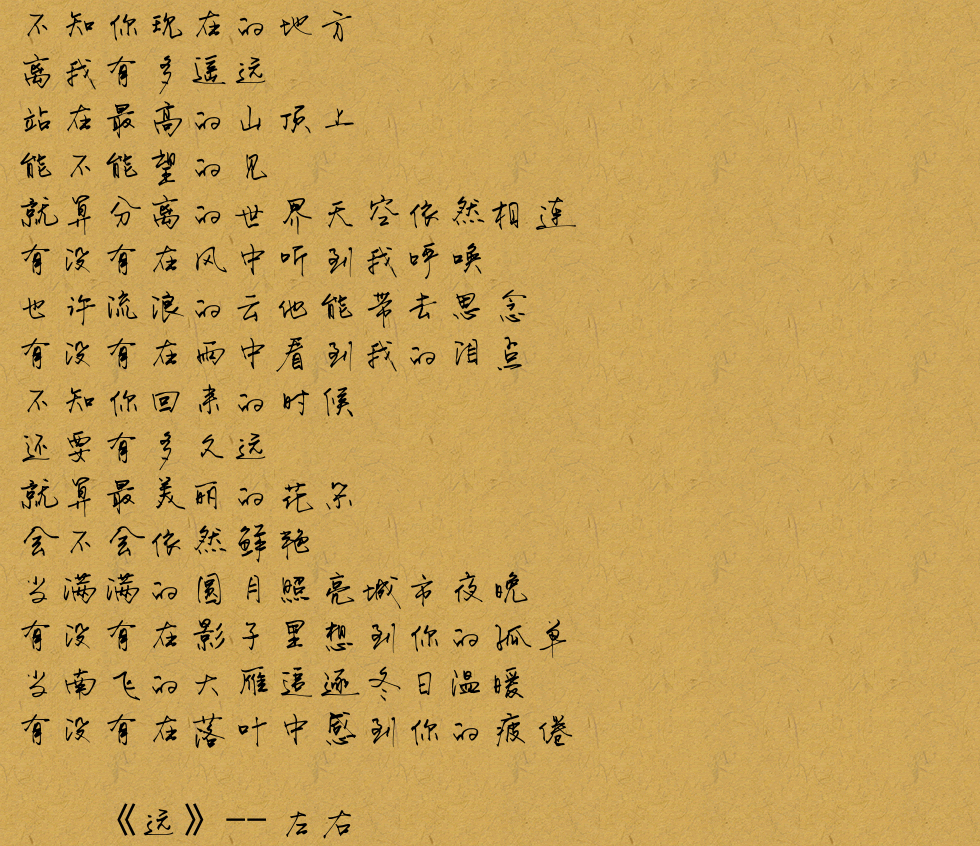 不知你现在的地方
离我有多遥远
站在最高的山顶上
能不能望的见
就算分离的世界天空依然相连
有没有在风中听到我呼唤
也许流浪的云他能带去思念
有没有在雨中看到我的泪点
不知你回来的时候
还要有多久远
就算最美丽的花朵
会不会依然鲜艳
当满满的圆月照亮城市夜晚
有没有在影子里想到你的孤单
当南飞的大雁追逐冬日温暖
有没有在落叶中感到你的疲倦
《远》 -- 左右